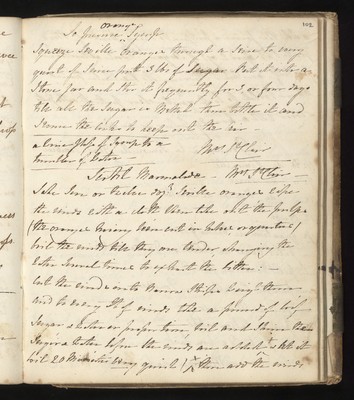 102
To preserve Orange Syrup
Squeeze Seville Oranges through a Sieve to every
quart of Juice put 3 lbs of Sugar Put it into a
Stone Jar and Stir it frequently for 3 or four days
till all the Sugar is Melted then bottle it and
the Corks to keep out the air —
a Wine Glass of Syrup to a
tumbler of Water —
Mrs St Clair
Scotch Marmalade — Mrs St Clair
Take Two or three dozn Seville oranges wipe
the rinds with a cloth then take out the pulp
(the oranges having been cut in halves or quarters)
boil the rinds till they are tender changing the
Water Several times to extract the bitter: —
Cut the rinds into Narrow Strips weigh them
and to every lb of rinds take a pound of loaf
Sugar & Water in proportion, boil and Skim the
Sugar & Water before the rinds are added & let it
boil 20 Minutes very quick / then add the rinds